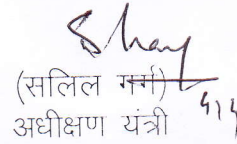 (सलिल गर्ग)
अधीक्षण यंत्री